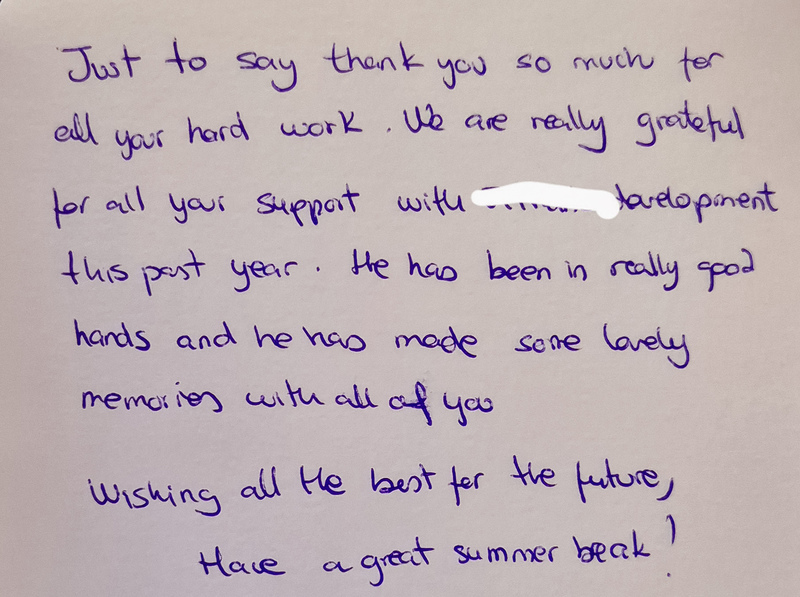 Just to say thank you so much for
all your hard work. We are really grateful
for all your support with development
this past year. He has been in really good
hands and he has made some lovely
memories with all of you
Wishing all the best for the future,
Have a great summer beak!